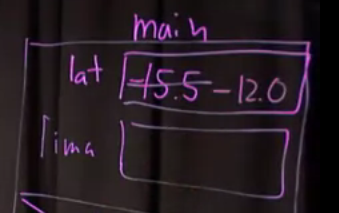 main
lat -15.5 -12.0
lima